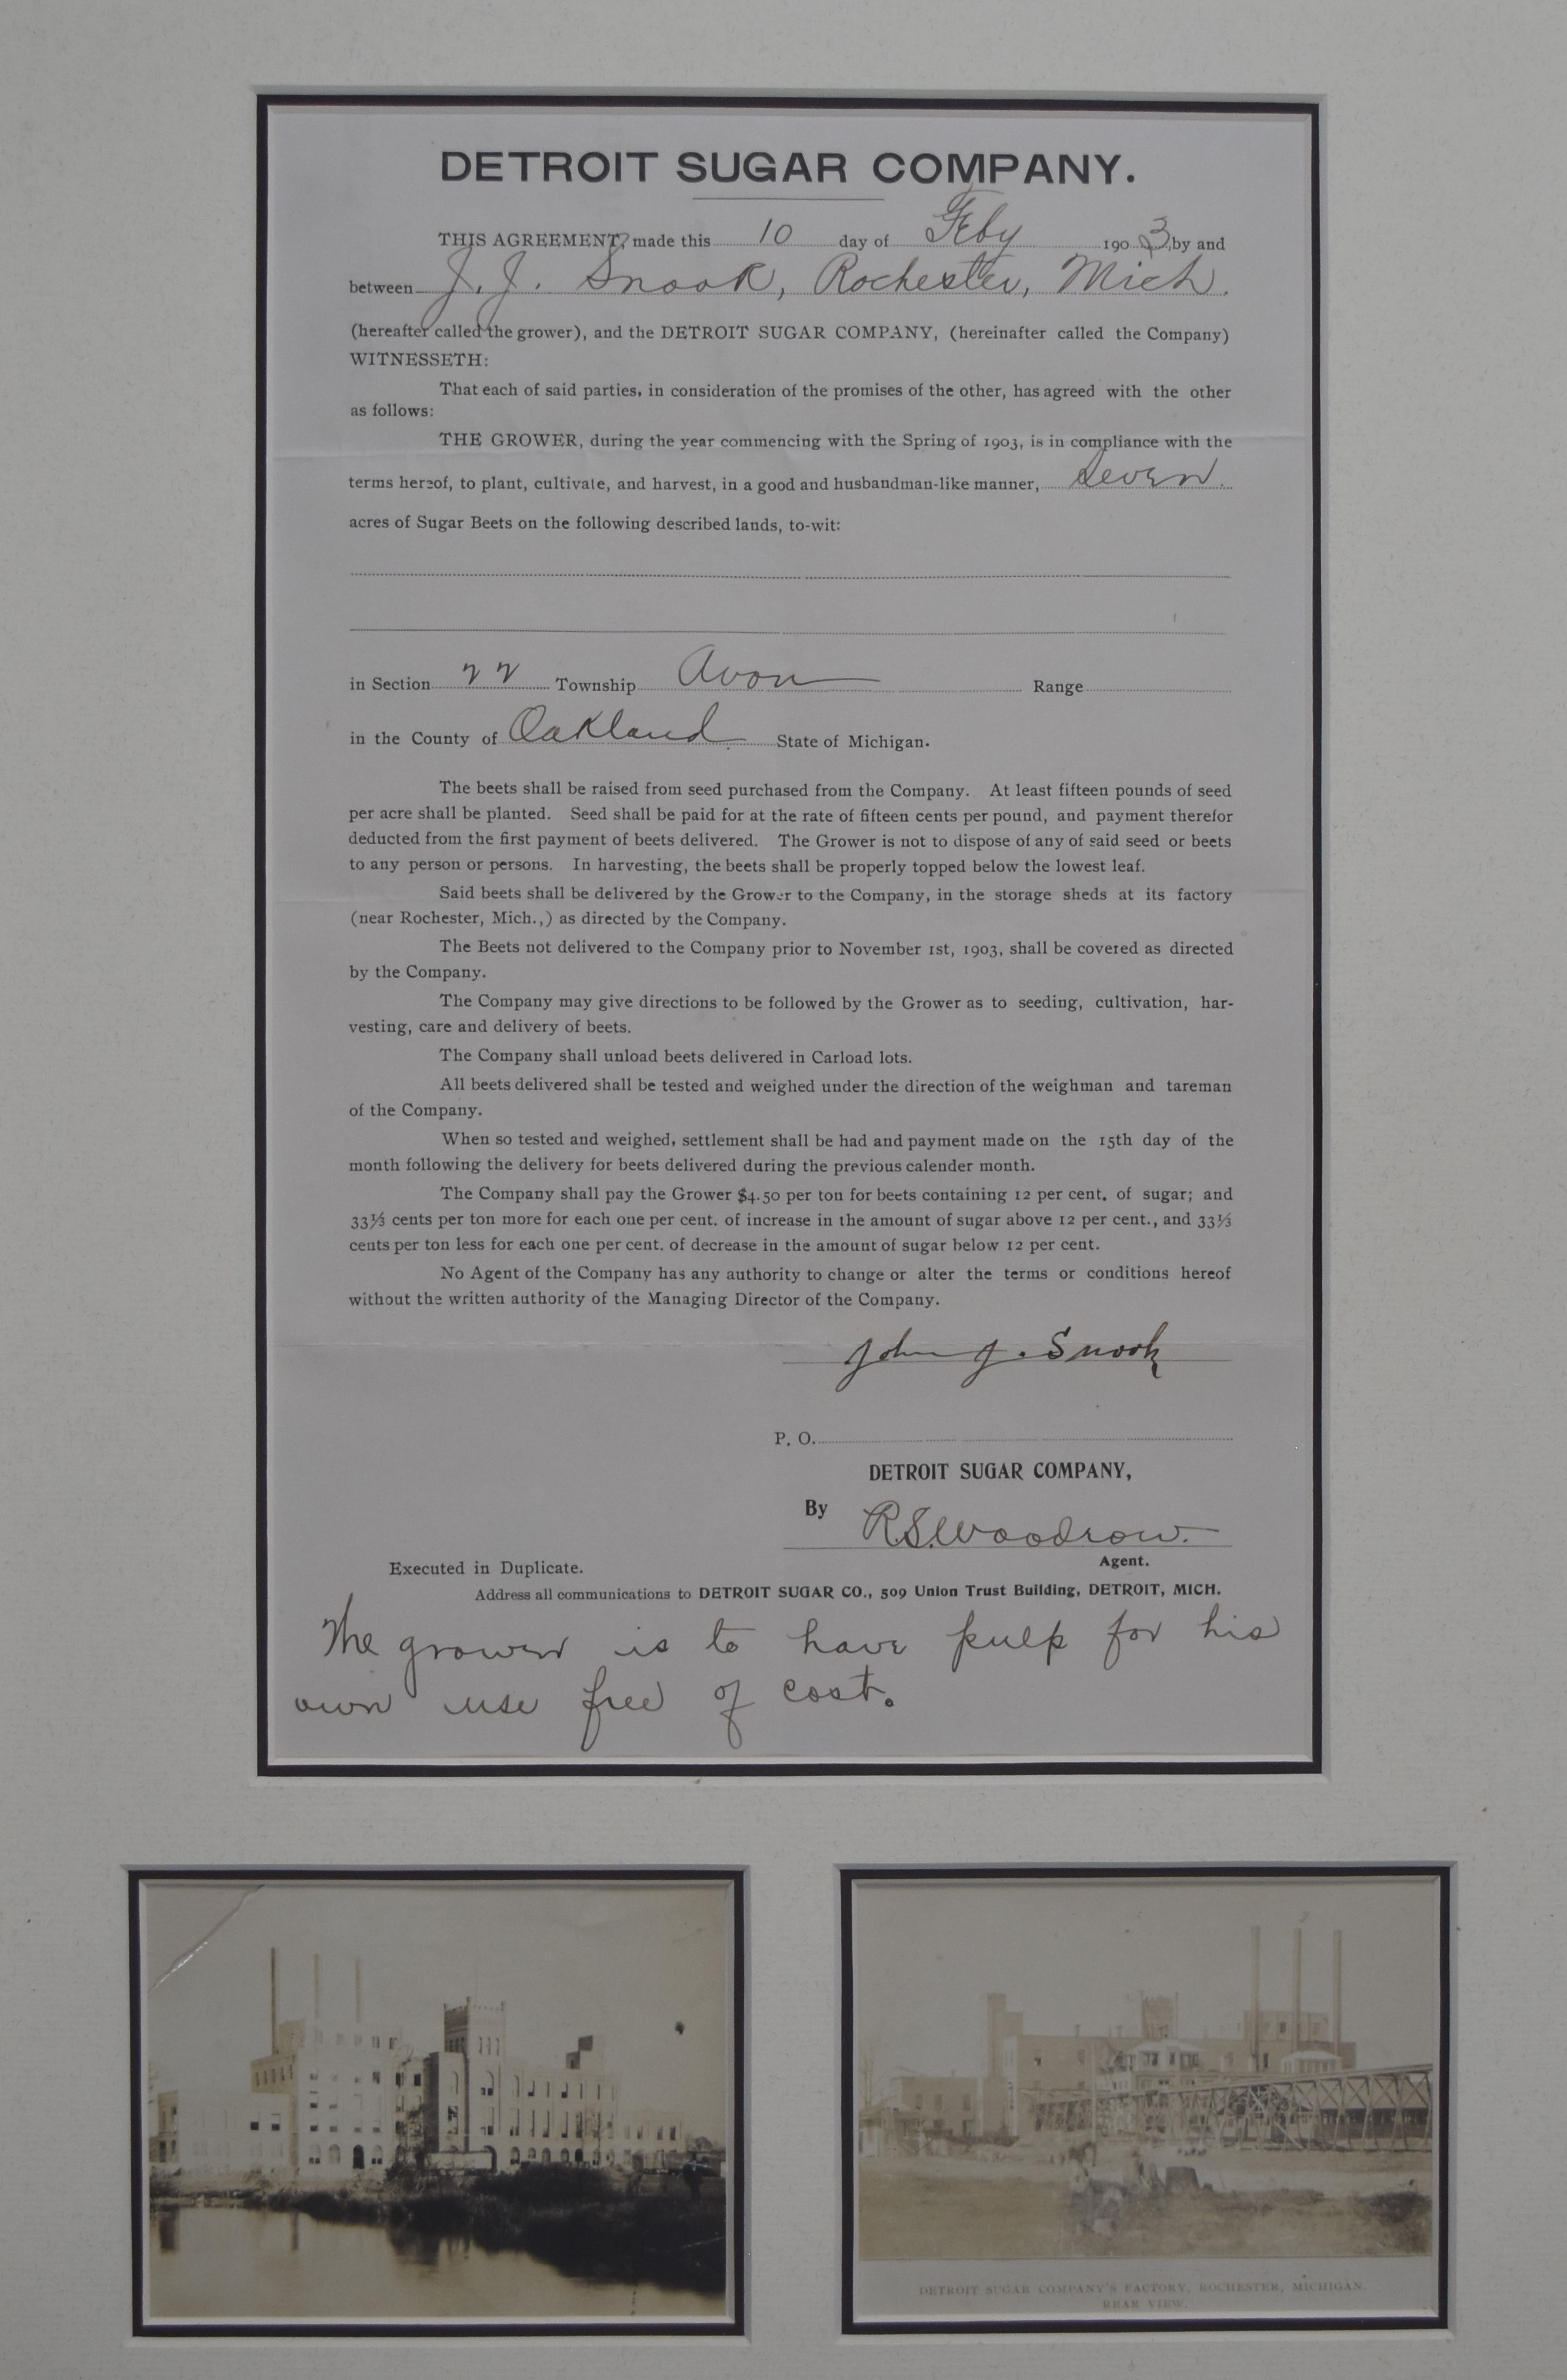 DETROIT SUGAR COMPANY.
THIS AGREEMENT, made this 10 day of Feby 1903, by and
between J. J. Snook, Rochester, Mich.
(hereafter called the grower), and the DETROIT SUGAR COMPANY, (hereinafter called the Company)
WITNESSETH:
That each of said parties, in consideration of the promises of the other, has agreed with the other
as follows:
THE GROWER, during the year commencing with the Spring of 1903, is in compliance with the
terms hereof, to plant, cultivate, and harvest, in a good and husbandman-like manner, Seven
acres of Sugar Beets on the following described lands, to-wit:
in Section 22 Township Avon Range
in the County of Oakland State of Michigan.
The beets shall be raised from seed purchased from the Company. At least fifteen pounds of seed
per acre shall be planted. Seed shall be paid for at the rate of fifteen cents per pound, and payment therefor
deducted from the first payment of beets delivered. The Grower is not to dispose of any of said seed or beets
to any person or persons. In harvesting, the beets shall be properly topped below the lowest leaf.
Said beets shall be delivered by the Grower to the Company, in the storage sheds at its factory
(near Rochester, Mich.,) as directed by the Company.
The Beets not delivered to the Company prior to November 1st, 1903, shall be covered as directed
by the Company.
The Company may give directions to be followed by the Grower as to seeding, cultivation, har-
vesting, care and delivery of beets.
The Company shall unload beets delivered in Carload lots.
All beets delivered shall be tested and weighed under the direction of the weighman and tareman
of the Company.
When so tested and weighed, settlement shall be had and payment made on the 15th day of the
month following the delivery for beets delivered during the previous calender month.
The Company shall pay the Grower $4.50 per ton for beets containing 12 per cent. of sugar; and
33⅓ cents per ton more for each one per cent. of increase in the amount of sugar above 12 per cent., and 33⅓
cents per ton less for each one per cent. of decrease in the amount of sugar below 12 per cent.
No Agent of the Company has any authority to change or alter the terms or conditions hereof
without the written authority of the Managing Director of the Company.
John J. Snook
P. O.
DETROIT SUGAR COMPANY,
By R.S. Woodrow.
Agent.
Executed in Duplicate.
Address all communications to DETROIT SUGAR CO., 509 Union Trust Building, DETROIT, MICH.
The grower is to have pulp for his
own use free of cost.
DETROIT SUGAR COMPANY'S FACTORY, ROCHESTER, MICHIGAN.
REAR VIEW.